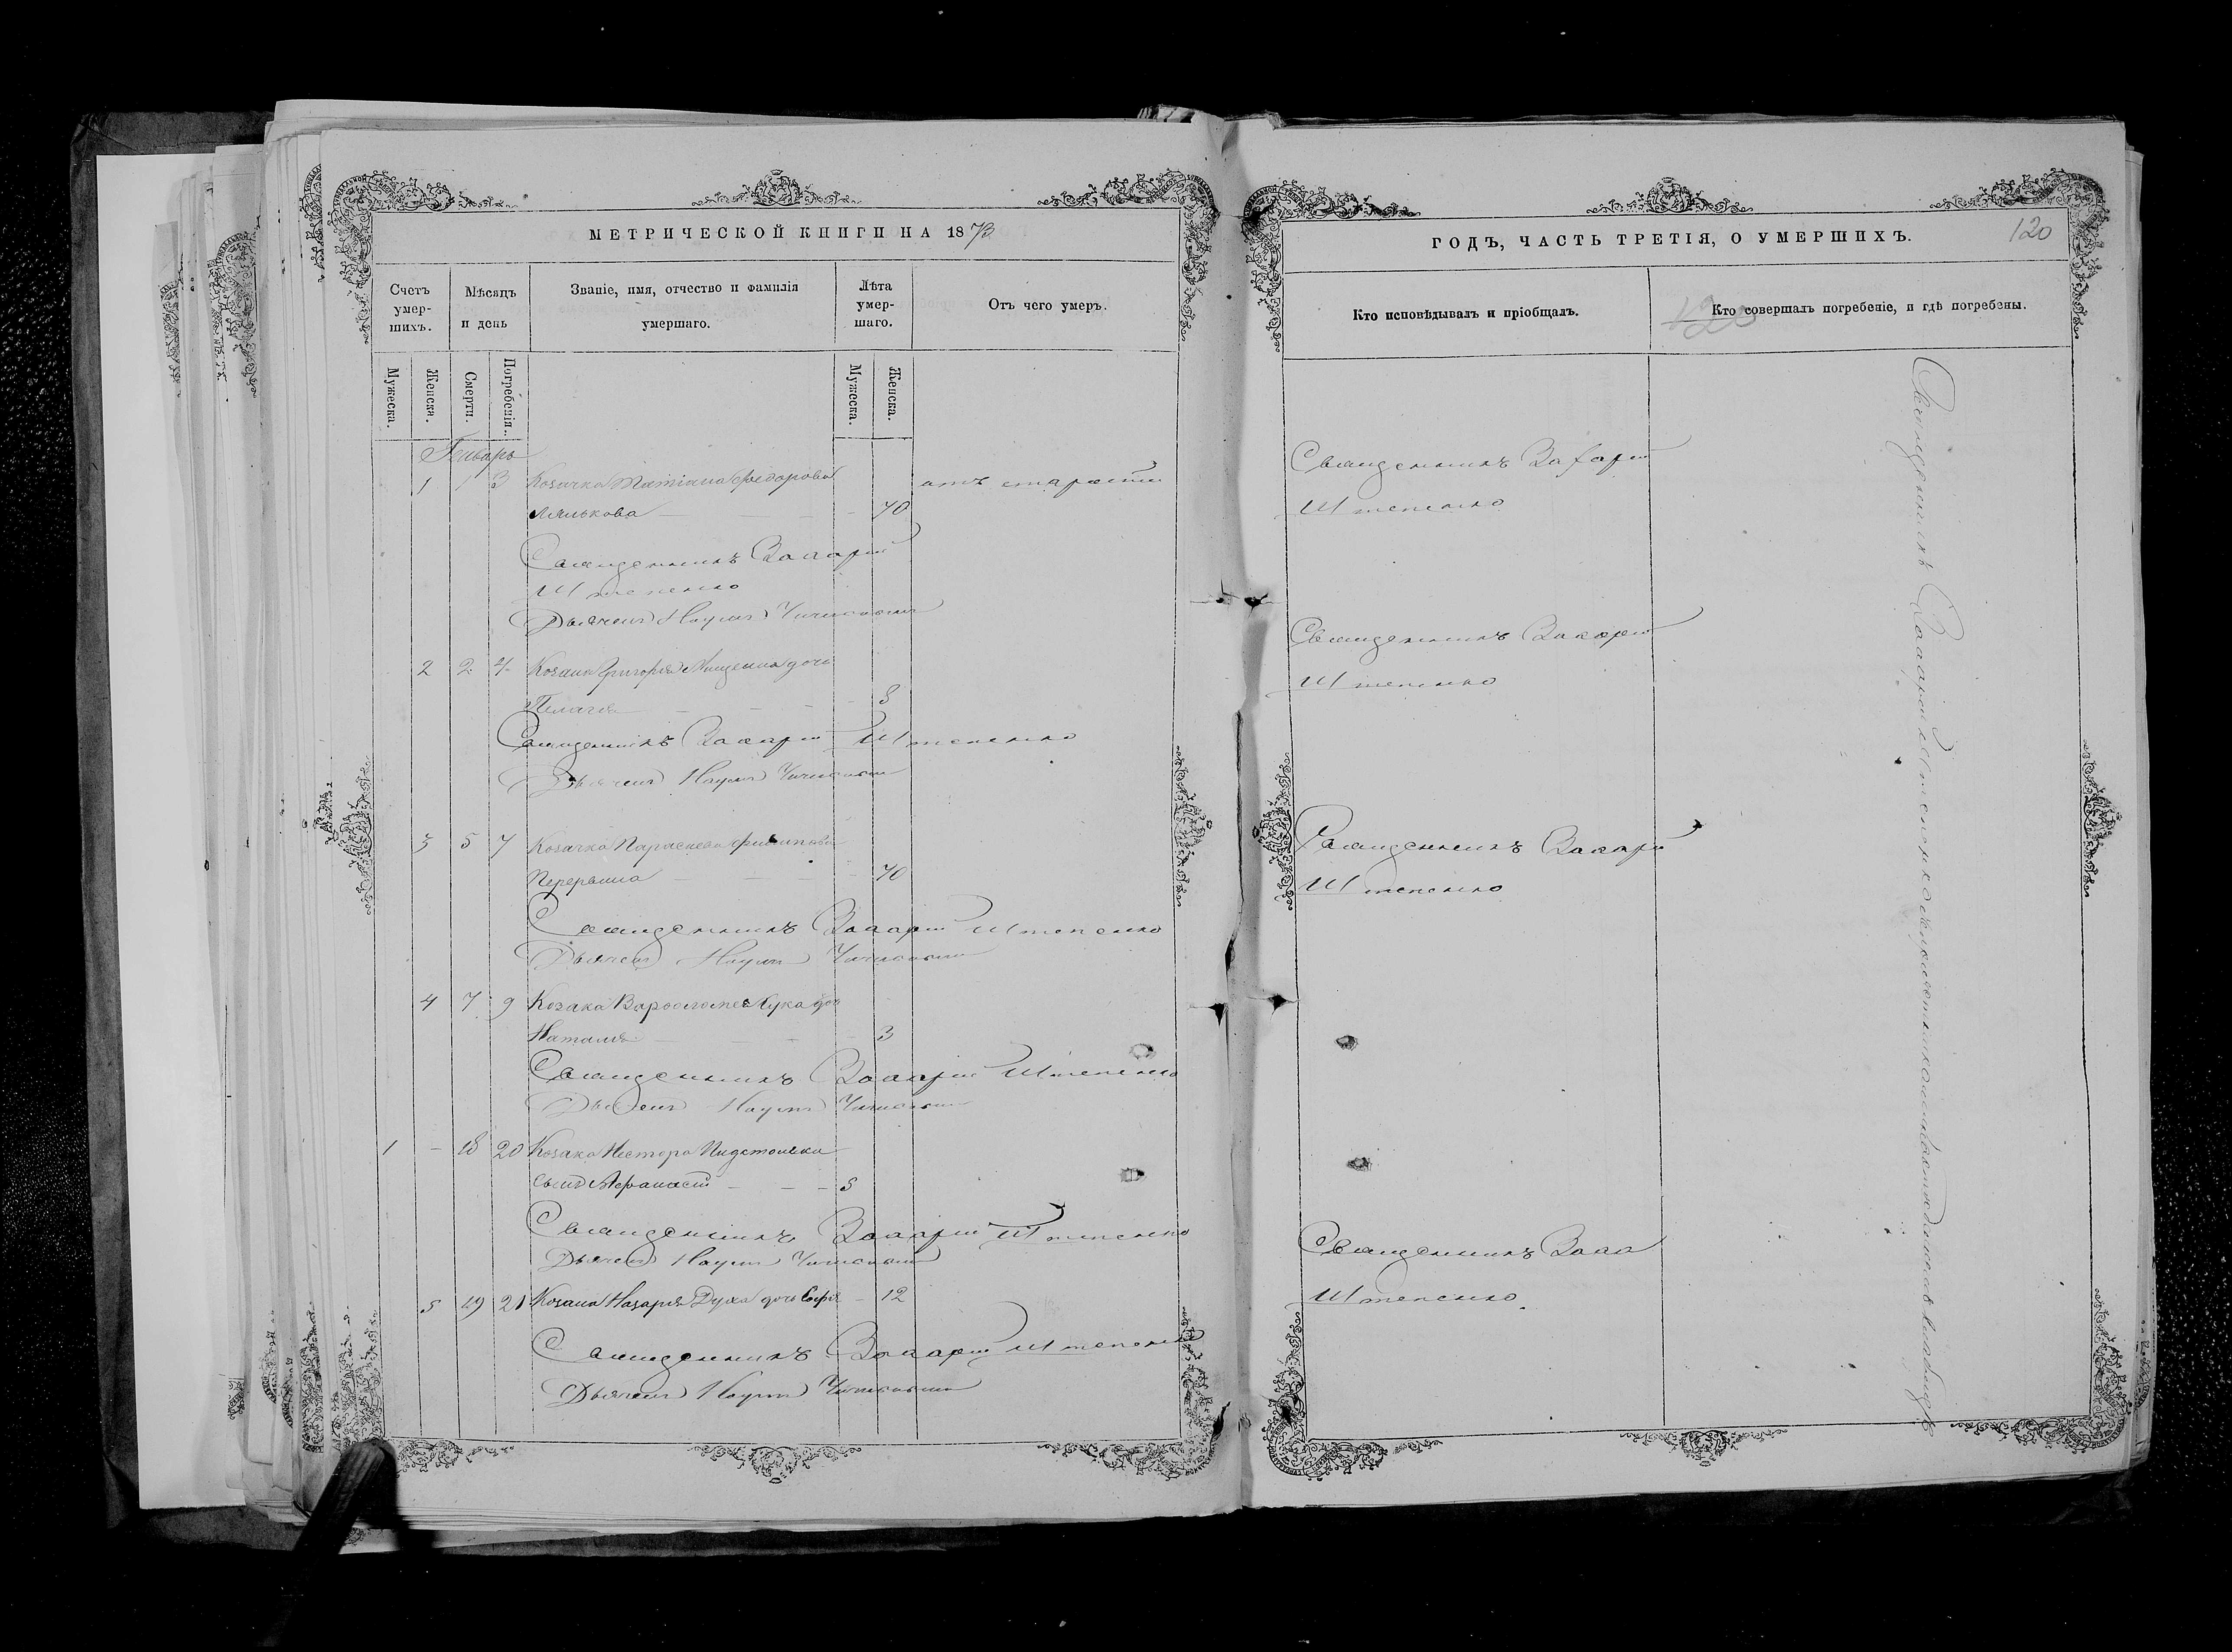 МЕТРИЧЕСКОЙ КНИГИ НА 1873
Счетъ умер-шихъ.
Мѣсяцъ и день
Званіе, имя, отчество и фамилія умершаго.
Лѣта умер-шаго.
Отъ чего умеръ.
Мужеска.
Женска.
Смерти.
Погребенія.
Мужеска.
Женска.
Январь
1 1 3 Козачка Татіана Федорова отъ старости
70
Священникъ Захарій
Штепенко
Дьячекъ Наумъ
2 2 4 Козака Григорія дочь
Пелагія 8
Священникъ Захарій Штепенко
Дьячекъ Наумъ
3 5 7 Козачка Параскева Филипова
70
Священникъ Захарій Штепенко
Дьячекъ Наумъ
4 7 9 Козака Варфоломея Кука доч
Наталія 3
Священникъ Захарій Штепенко
Дьячекъ Наумъ
1 - 18 20 Козака Нестора
сынъ Афанасій 5
Священникъ Захарій Штепенко
Дьячекъ Наумъ
5 19 21 Козака Назарія Духа дочь Софія 12
Священникъ Захарій Штепенко
Дьячекъ Наумъ
ГОДЪ, ЧАСТЬ ТРЕТІЯ, О УМЕРШИХЪ.
120
Кто исповѣдывалъ и пріобщалъ.
Кто совершалъ погребеніе, и гдѣ погребены.
120
Священникъ Захарій
Штепенко
Священникъ Захарій
Штепенко
Священникъ Захарій
Штепенко
Священникъ Заха
Штепенко
Священникъ Захарій Штепенко